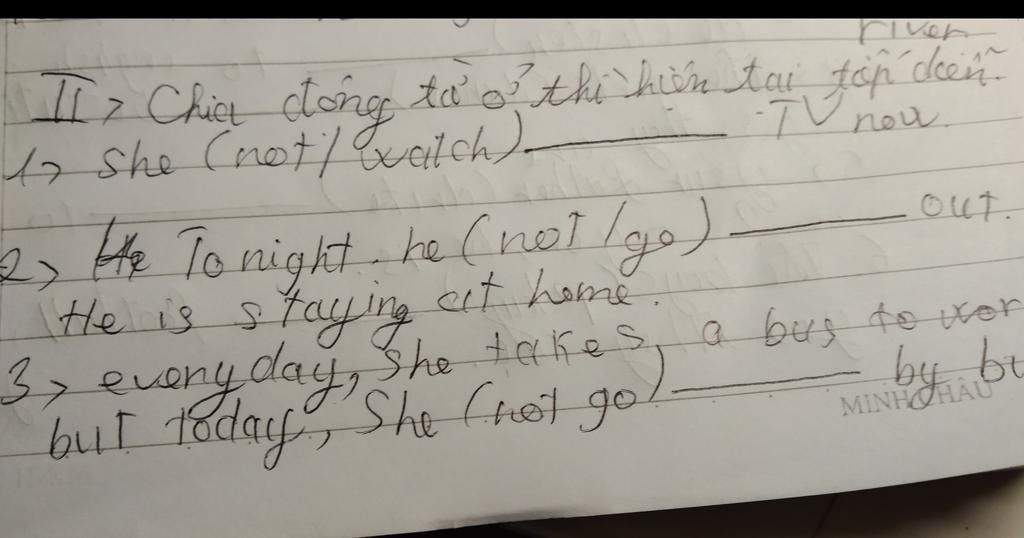 river
II> Chia động từ ở thì hiện tại tiếp diễn.
1> She (not/watch) ______ TV now.
2> He Tonight. he (not/go) ______ out.
He is staying at home.
3> everyday, She takes a bus to wor
but today, She (not go) ______ by bu
MINH CHÂU